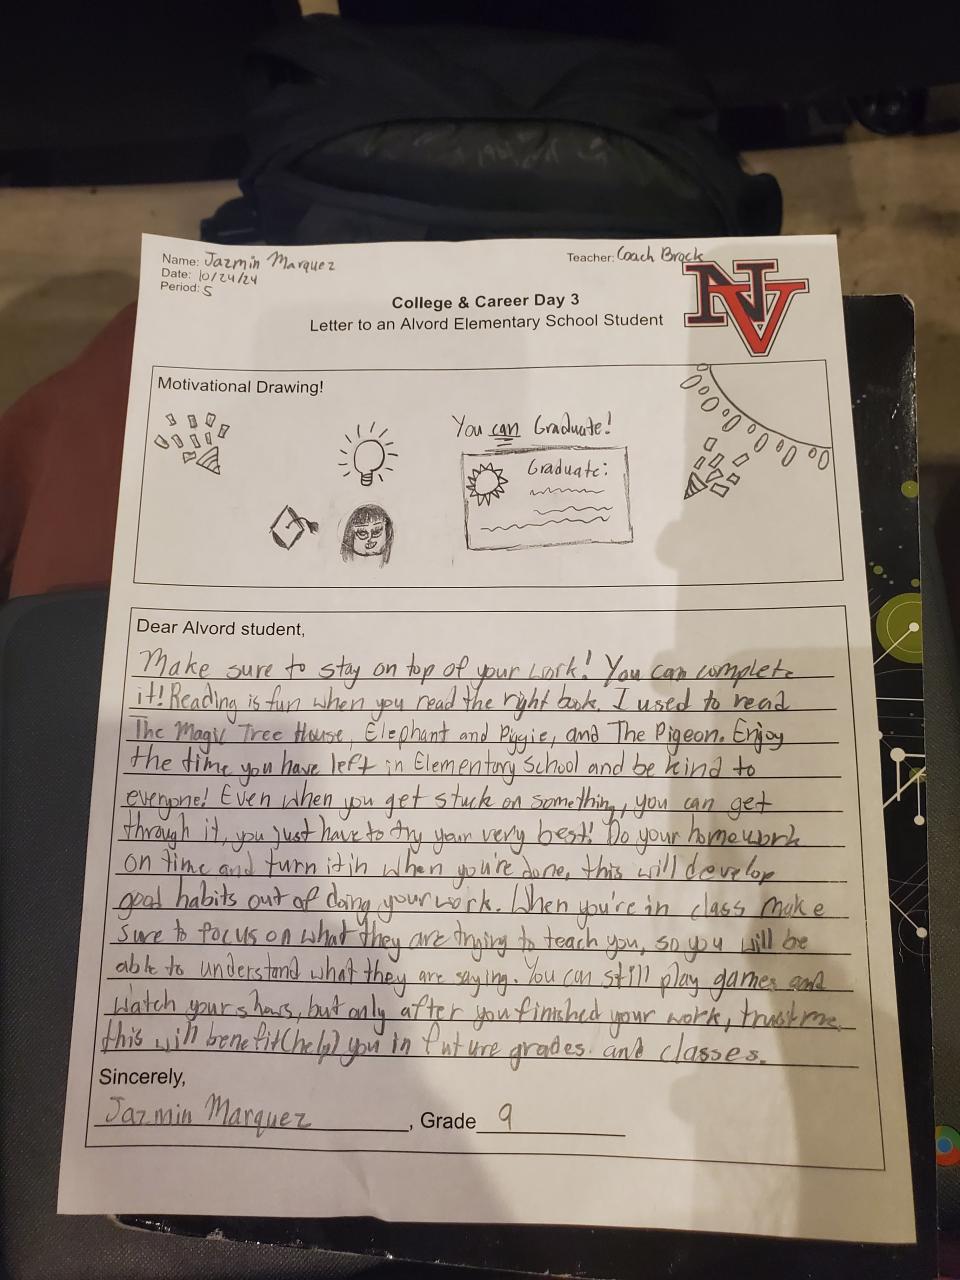 Name: Jazmin Marquez
Teacher: Coach Brock
Date: 10/24/24
Period: 5
NV
College & Career Day 3
Letter to an Alvord Elementary School Student
Motivational Drawing!
You can Graduate!
Graduate:
Dear Alvord student,
Make sure to stay on top of your work! You can complete
it! Reading is fun when you read the right book, I used to read
The Magic Tree House, Elephant and Piggie, and The Pigeon. Enjoy
the time you have left in Elementary School and be kind to
everyone! Even when you get stuck on something, you can get
through it, you just have to try your very best! Do your homework
on time and turn it in when you're done, this will develop
good habits out of doing your work. When you're in class make
sure to focus on what they are trying to teach you, so you will be
able to understand what they are saying. You can still play games and
watch your shows, but only after you finished your work, trust me
this will benefit(help) you in future grades. and classes.
Sincerely,
Jazmin Marquez, Grade 9